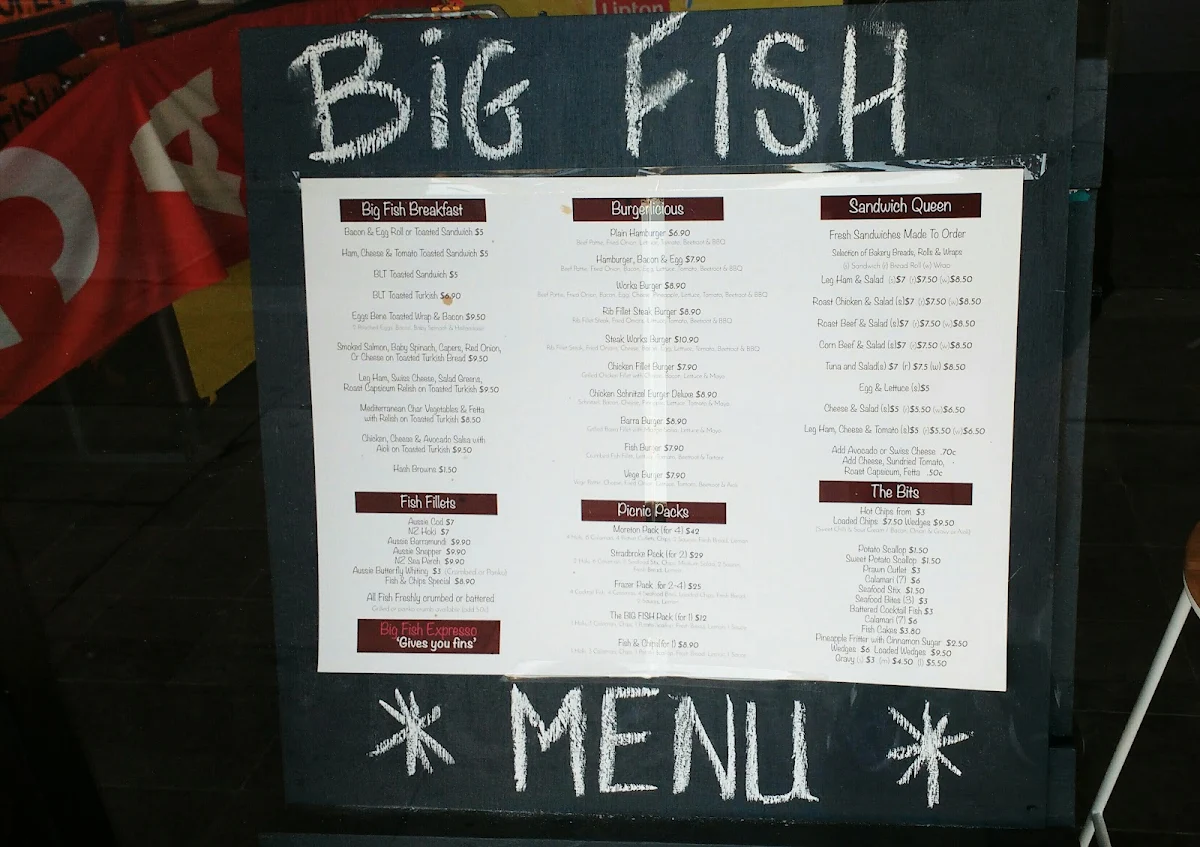 Lipton
BIG FISH
Big Fish Breakfast
Bacon & Egg Roll or Toasted Sandwich $5
Ham, Cheese & Tomato Toasted Sandwich $5
BLT Toasted Sandwich $5
BLT Toasted Turkish $6.90
Eggs Bene Toasted Wrap & Bacon $9.50
Smoked Salmon, Baby Spinach, Capers, Red Onion,
Cr Cheese on Toasted Turkish Bread $9.50
Leg Ham, Swiss Cheese, Salad Greens,
Roast Capsicum Relish on Toasted Turkish $9.50
Mediterranean Char Vegetables & Fetta
with Relish on Toasted Turkish $8.50
Chicken, Cheese & Avocado Salsa with
Aioli on Toasted Turkish $9.50
Hash Browns $1.50
Fish Fillets
Aussie Cod $7
NZ Hoki $7
Aussie Barramundi $9.90
Aussie Snapper $9.90
NZ Sea Perch $9.90
Aussie Butterfly Whiting $3 (Crumbed or Panko)
Fish & Chips Special $8.90
All Fish Freshly crumbed or battered
Big Fish Expresso
'Gives you fins'
Burgerlicious
Plain Hamburger $6.90
Beef Pattie, Fried Onion, Lettuce, Tomato, Beetroot & BBQ
Hamburger, Bacon & Egg $7.90
Beef Pattie, Fried Onion, Bacon, Egg, Lettuce, Tomato, Beetroot & BBQ
Works Burger $8.90
Beef Pattie, Fried Onion, Bacon, Egg, Cheese, Pineapple, Lettuce, Tomato, Beetroot & BBQ
Rib Fillet Steak Burger $8.90
Rib Fillet Steak, Fried Onions, Lettuce, Tomato, Beetroot & BBQ
Steak Works Burger $10.90
Chicken Fillet Burger $7.90
Chicken Schnitzel Burger Deluxe $8.90
Barra Burger $8.90
Fish Burger $7.90
Vege Burger $7.90
Picnic Packs
Moreton Pack (for 4) $42
Stradbroke Pack (for 2) $29
Frazer Pack (for 2-4) $25
The BIG FISH Pack (for 1) $12
Fish & Chips(for 1) $8.90
Sandwich Queen
Fresh Sandwiches Made To Order
Selection of Bakery Breads, Rolls & Wraps
(s) Sandwich (r) Bread Roll (w) Wrap
Leg Ham & Salad (s)$7 (r)$7.50 (w)$8.50
Roast Chicken & Salad (s)$7 (r)$7.50 (w)$8.50
Roast Beef & Salad (s)$7 (r)$7.50 (w)$8.50
Corn Beef & Salad (s)$7 (r)$7.50 (w)$8.50
Tuna and Salad(s) $7 (r) $7.5 (w) $8.50
Egg & Lettuce (s)$5
Cheese & Salad (s)$5 (r)$5.50 (w)$6.50
Leg Ham, Cheese & Tomato (s)$5 (r)$5.50 (w)$6.50
Add Avocado or Swiss Cheese .70c
Add Cheese, Sundried Tomato,
Roast Capsicum, Fetta .50c
The Bits
Hot Chips from $3
Loaded Chips $7.50 Wedges $9.50
Potato Scallop $1.50
Sweet Potato Scallop $1.50
Prawn Cutlet $3
Calamari (7) $6
Seafood Stix $1.50
Seafood Bites (3) $3
Battered Cocktail Fish $3
Calamari (7) $6
Fish Cakes $3.80
Pineapple Fritter with Cinnamon Sugar $2.50
Wedges $6 Loaded Wedges $9.50
Gravy (s) $3 (m) $4.50 (l) $5.50
* MENU *